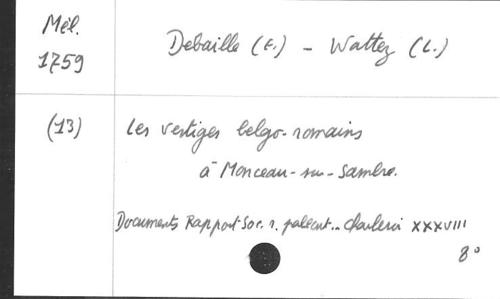 Mél.
1759
Debaille (E.) - Wattez (L.)
(13)
Les vestiges belgo-romains
à Monceau-su-Sambre.
Documents Rapport Soc. r. paléont.. Charleroi XXXVIII
8°